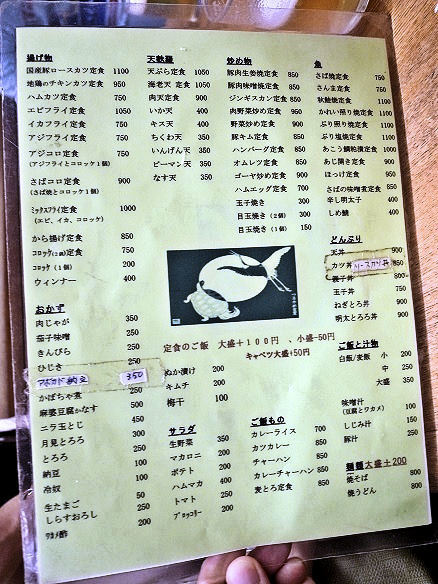 揚げ物
国産豚ロースカツ定食 1100
地鶏のチキンカツ定食 950
ハムカツ定食 750
エビフライ定食 1050
イカフライ定食 750
アジフライ定食 750
アジコロ定食 750
(アジフライとコロッケ1個)
さばコロ定食 900
(さば焼とコロッケ1個)
ミックスフライ定食 1000
(エビ、イカ、コロッケ)
から揚げ定食 850
コロッケ(2個)定食 750
コロッケ(1個) 200
ウィンナー 400
おかず
肉じゃが 350
茄子味噌 250
きんぴら 250
ひじき
アボカド納豆 350
かぼちゃ煮 250
麻婆豆腐かなす 500
ニラ玉とじ 450
月見とろろ 300
とろろ 250
納豆 100
冷奴 100
生たまご 50
しらすおろし 250
ワカメ酢 200
天麩羅
天ぷら定食 1050
海老天 定食 1050
肉天定食 900
いか天 400
キス天 400
ちくわ天 350
いんげん天 350
ピーマン天 350
なす天 350
炒め物
豚肉生姜焼定食 850
豚肉味噌焼定食 850
ジンギスカン定食 850
肉野菜炒め定食 950
野菜炒め定食 900
豚キム定食 850
ハンバーグ定食 850
オムレツ定食 850
ゴーヤ炒め定食 900
ハムエッグ定食 700
玉子焼き 300
目玉焼き (2個) 300
目玉焼き (1個) 150
魚
さば焼定食 750
さんま定食 750
秋鮭焼定食
かれい照り焼定食 1100
ぶり照り焼定食 1100
ぶり塩焼定食 1100
あこう鯛粕漬定食 1000
あじ開き定食 900
ほっけ定食 950
さばの味噌煮定食 850
辛し明太子 400
しめ鯖 400
どんぶり
天丼 900
カツ丼 ソースカツ丼 850
親子丼 800
玉子丼 750
ねぎとろ丼 900
明太とろろ丼 900
定食のご飯 大盛+100円 、小盛-50円
キャベツ大盛+50円
ぬか漬け 200
キムチ 200
梅干 100
サラダ
生野菜 350
マカロニ 200
ポテト 200
ハムマカ 400
トマト 250
ブロッコリー 200
ご飯もの
カレーライス 700
カツカレー 850
チャーハン 850
カレーチャーハン 850
麦とろ定食 850
ご飯と汁物
白飯/麦飯 小 200
中 250
大盛 350
味噌汁 100
(豆腐とワカメ)
しじみ汁 150
豚汁 250
麺類大盛+200
焼そば 800
焼うどん 800